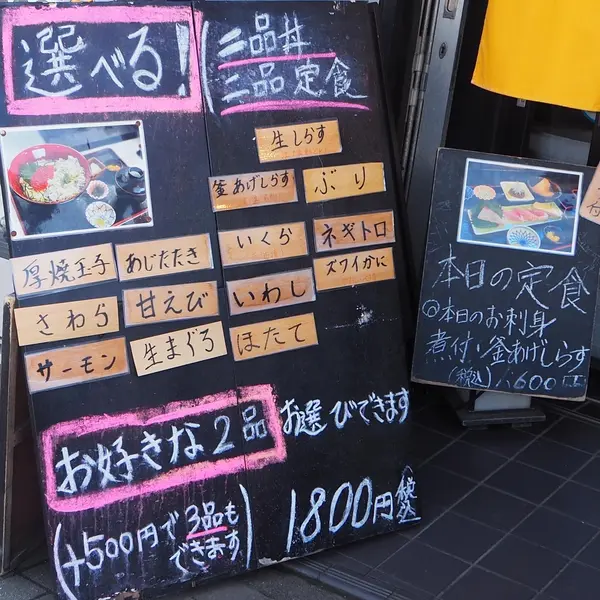 選べる!
二品丼
二品定食
生しらす
釜あげしらす
ぶり
いくら
ネギトロ
厚焼玉子
あじたたき
ズワイかに
さわら
甘えび
いわし
サーモン
生まぐろ
ほたて
お好きな2品
お選びできます
1800円税込
(+500円で3品も
できます)
本日の定食
◎本日のお刺身
煮付・釜あげしらす
(税込)1600円